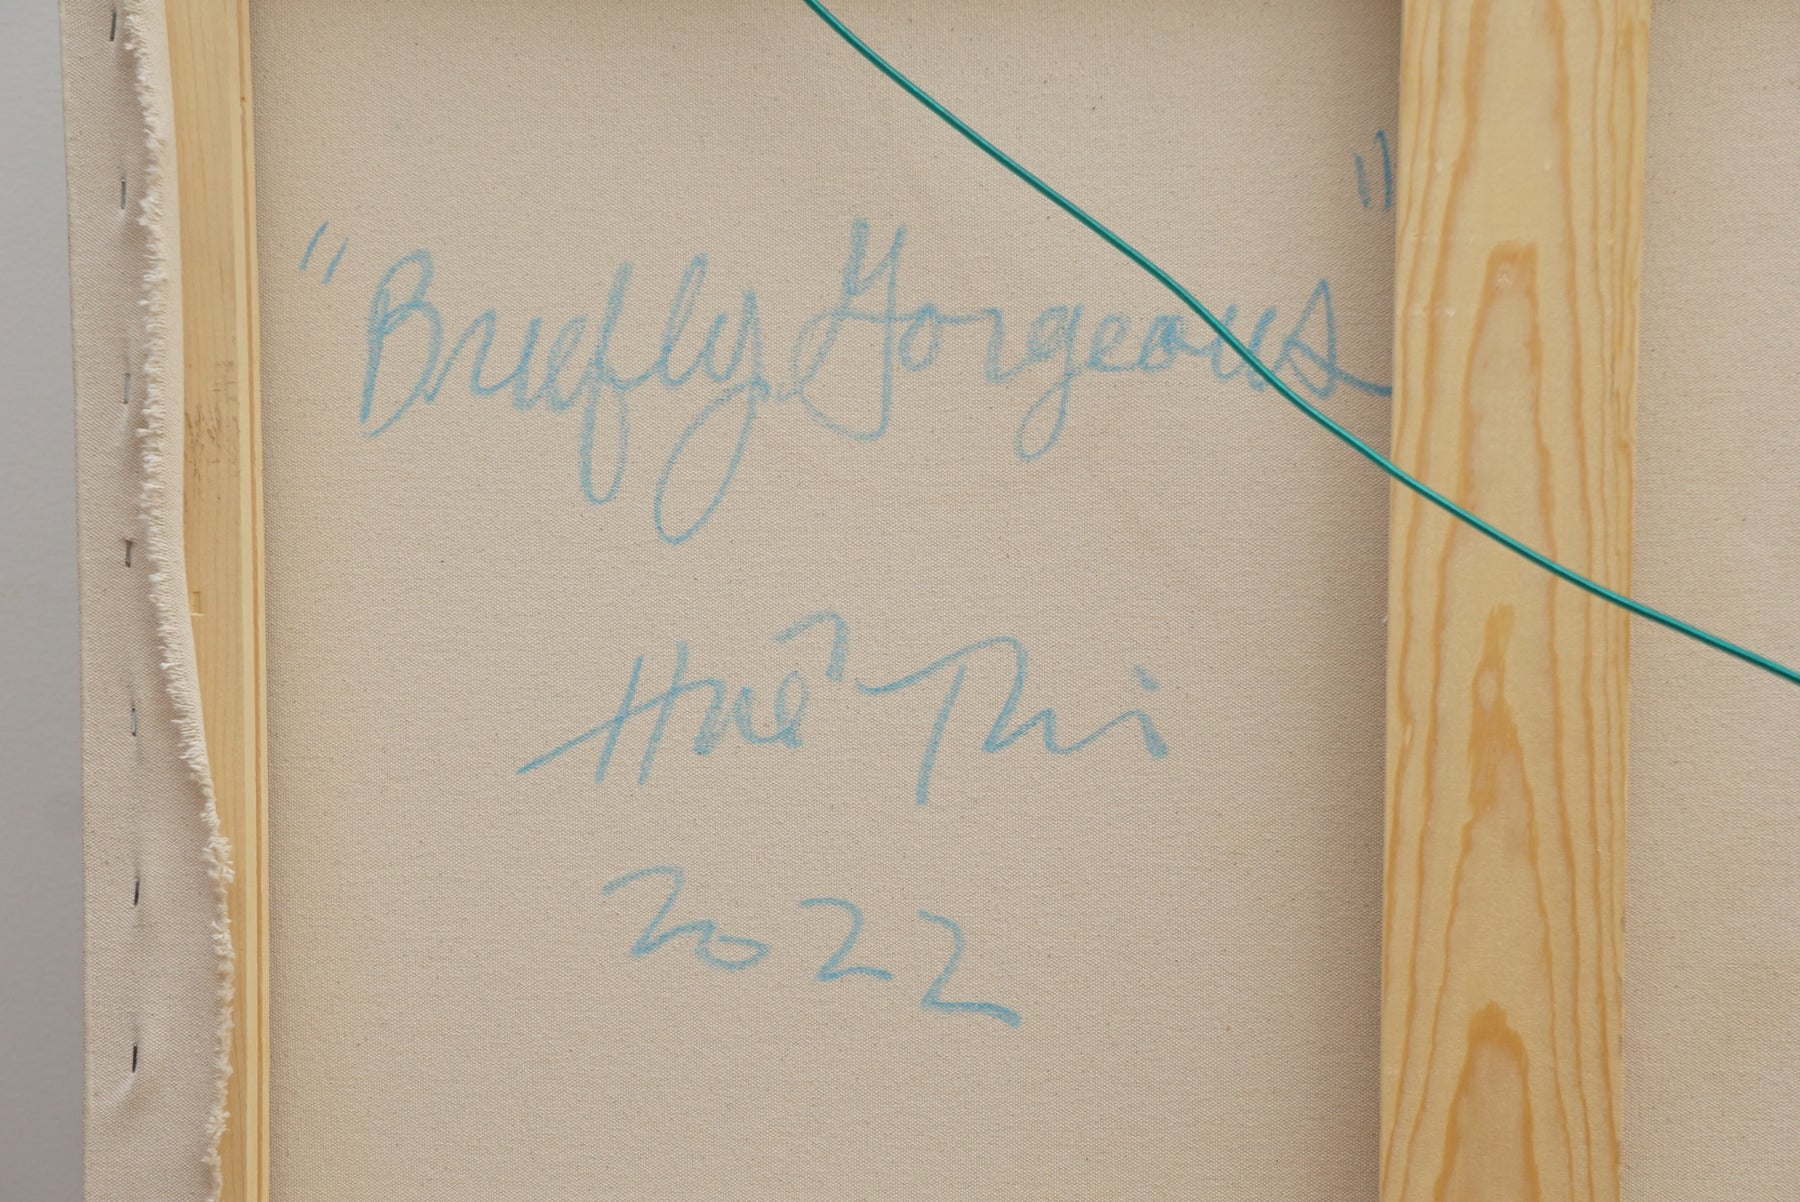 "Briefly Gorgeous"
Huế Thi
2022